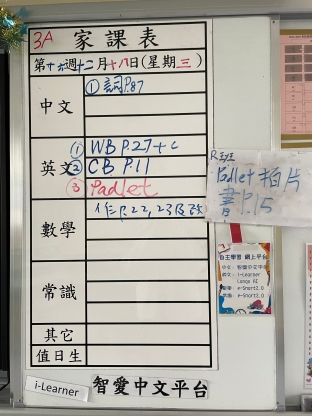 3A 家課表
第十六週十二月十八日(星期三)
中文 ①詞P.87
英文 ① WB P.27+c
② CB P.11
③ Padlet
數學 作P.22, 23及改
常識
其它
值日生
i-Learner 智愛中文平台
R班
Padlet 拍片
書P.15
自主學習 網上平台
中文: 智愛中文平台
英文: i-Learner